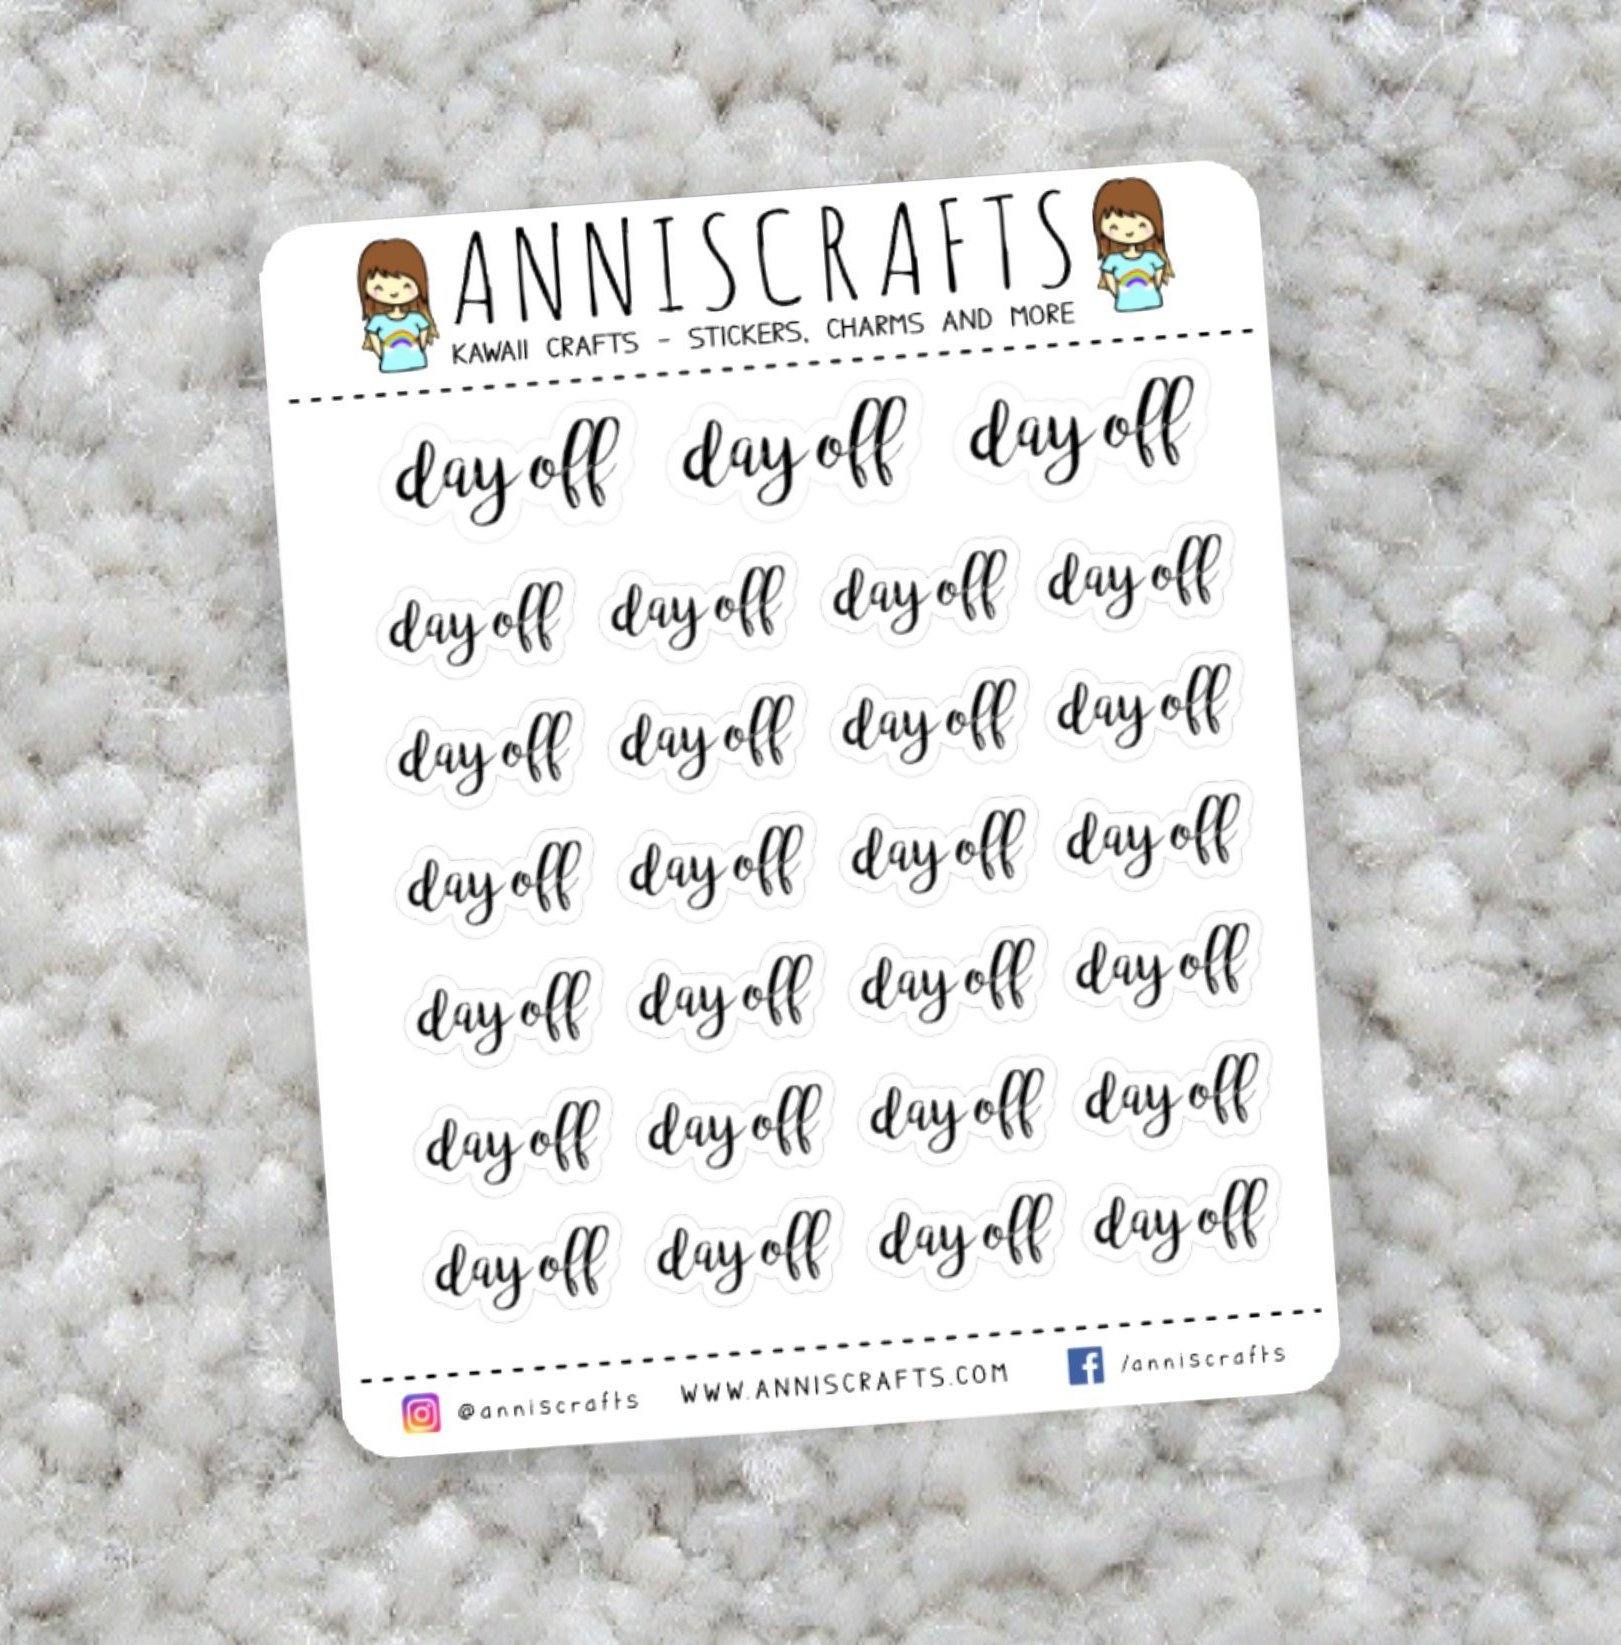 ANNISCRAFTS
KAWAII CRAFTS - STICKERS, CHARMS AND MORE
day off day off day off
day off day off day off day off
day off day off day off day off
day off day off day off day off
day off day off day off day off
day off day off day off day off
day off day off day off day off
@anniscrafts WWW.ANNISCRAFTS.COM /anniscrafts